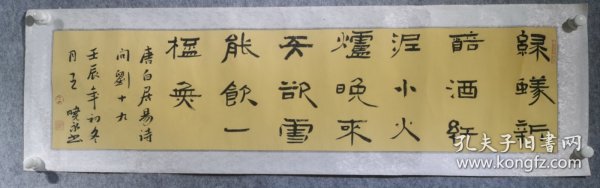 綠蟻新
醅酒紅
泥小火
爐晚來
天欲雪
能飲一
桮無
唐白居易詩
問劉十九
壬辰年初冬
月王
孔夫子旧书网
www.kongfz.com